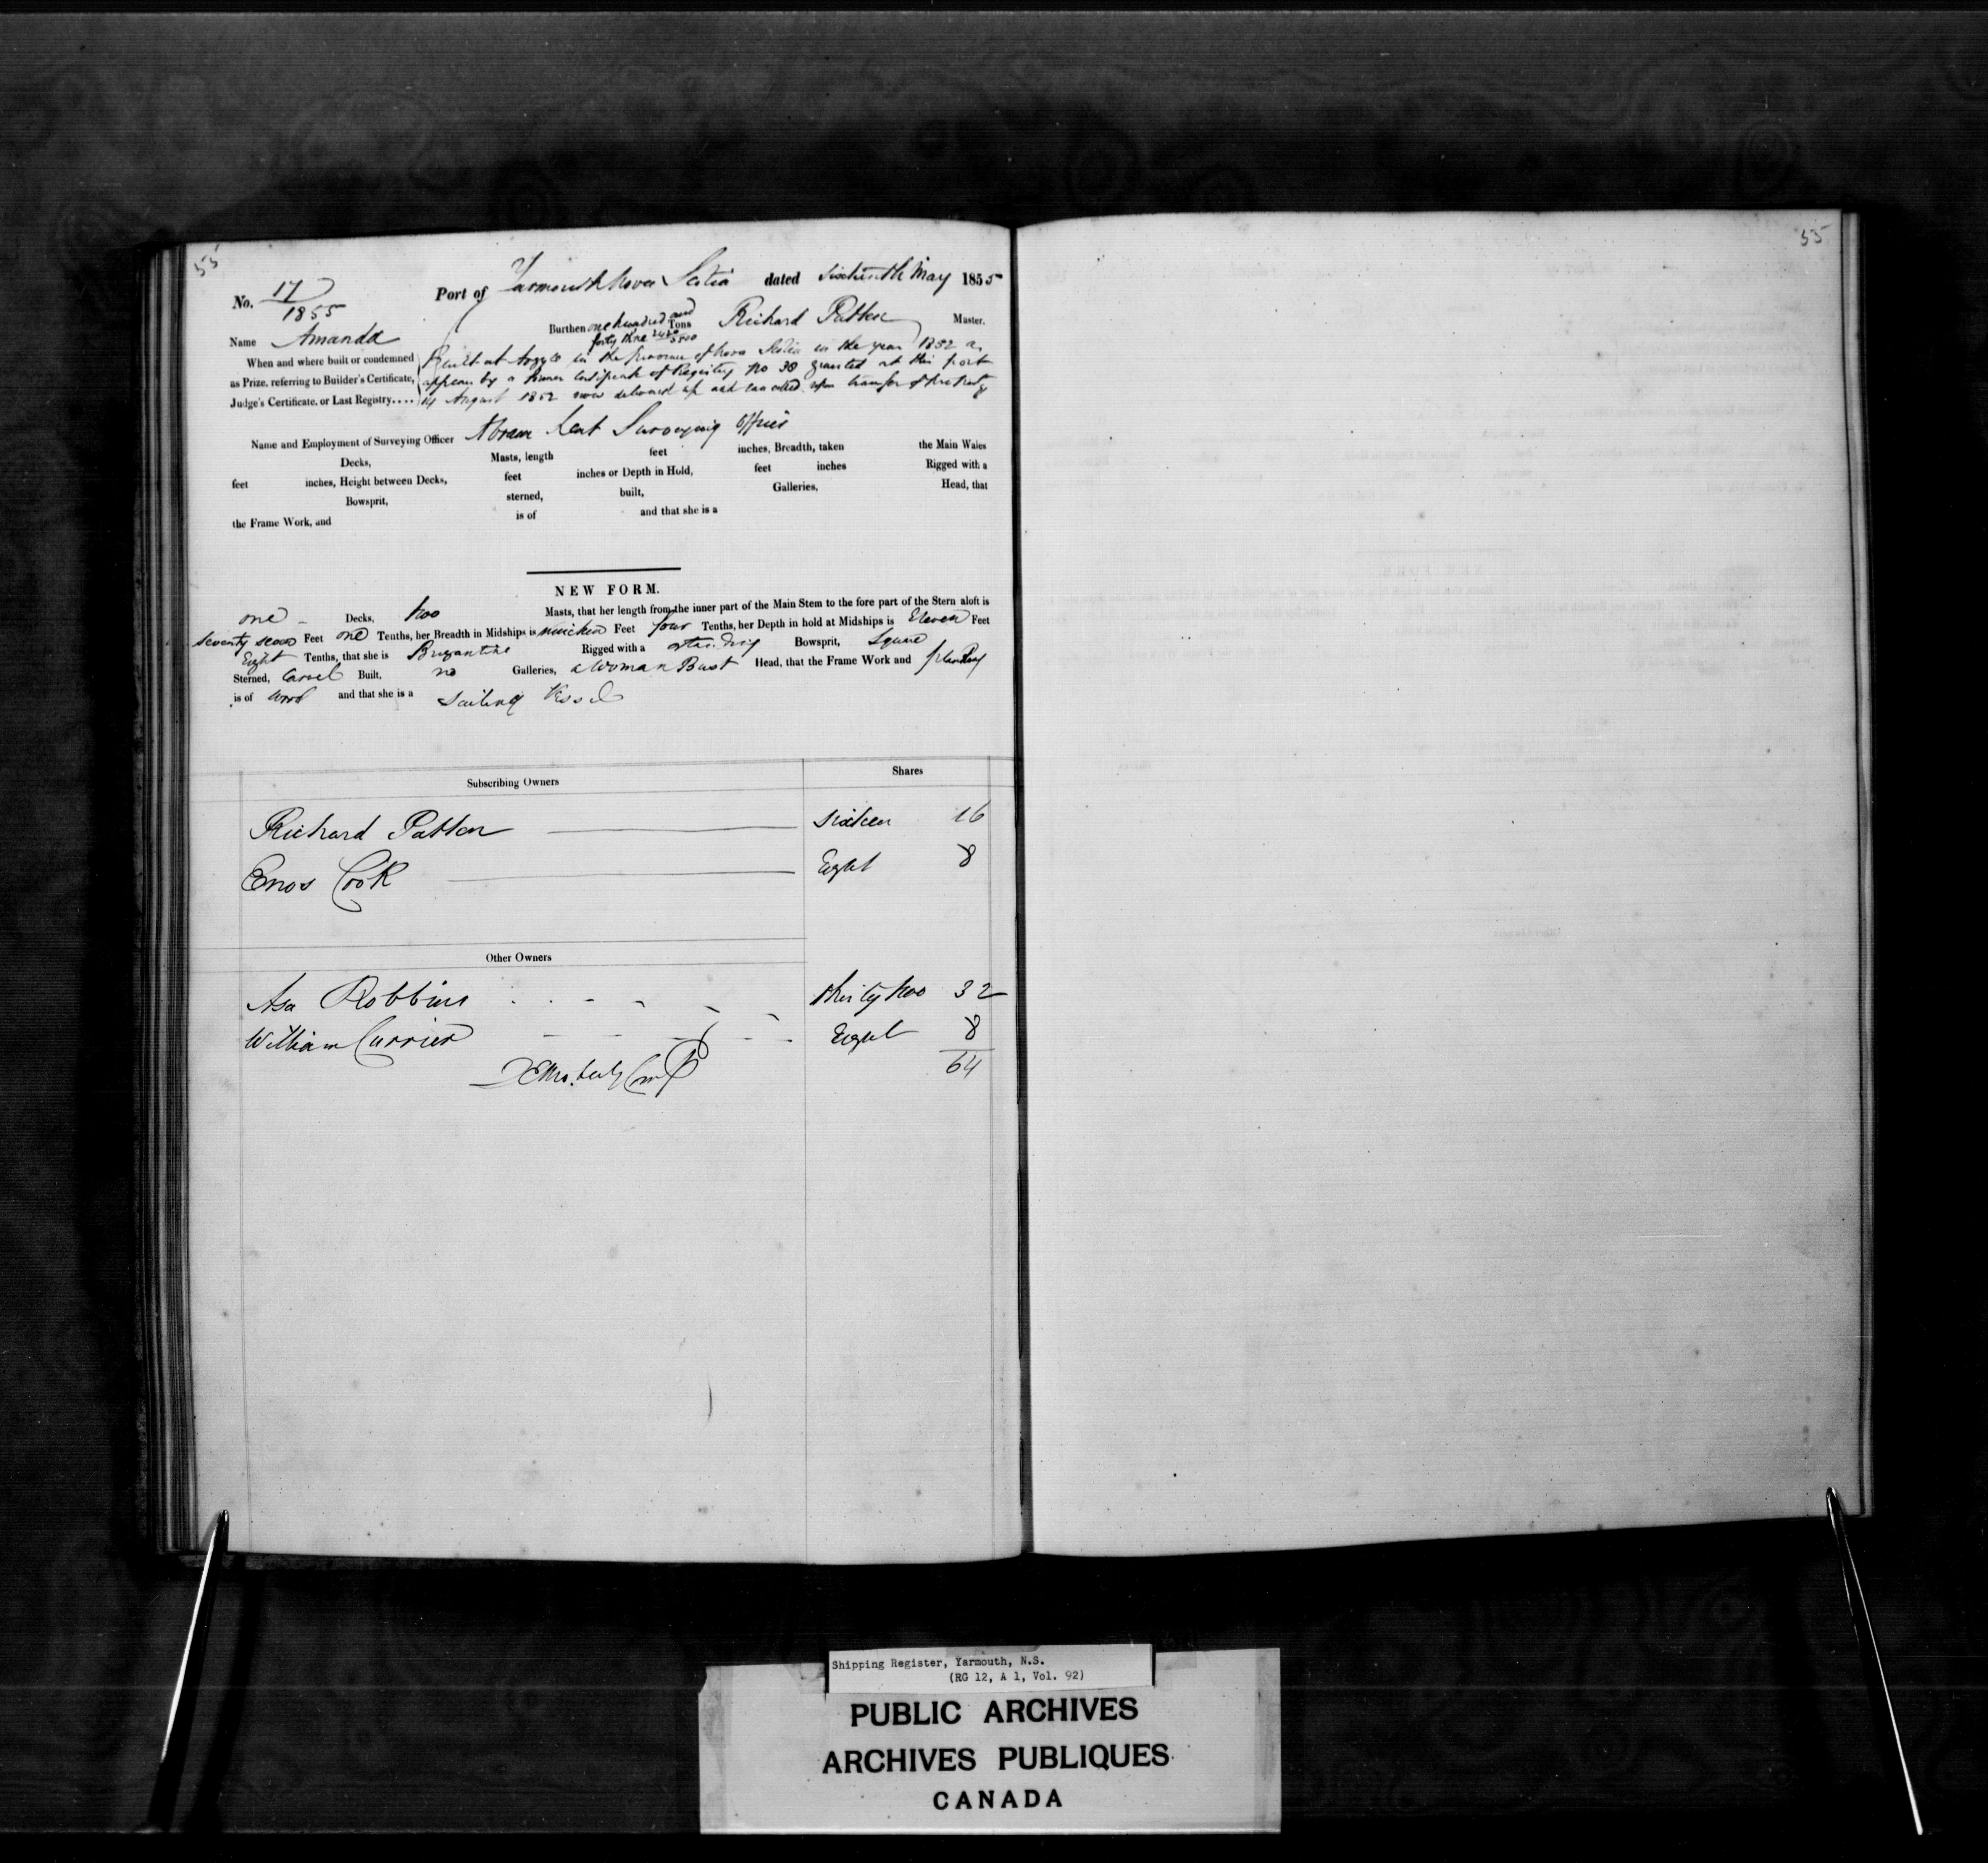 55
55
No. 17/1855 Port of Yarmouth Nova Scotia dated Sixteenth May 1855
Name Amanda Burthen one hundred and forty three 2420/3500 Tons Richard Patten Master.
When and where built or condemned Built at Argyle in the Province of Nova Scotia in the year 1852 as
as Prize, referring to Builder's Certificate, appears by a former Certificate of Registry No 38 granted at this port
Judge's Certificate, or Last Registry.... 14 August 1852 now delivered up and cancelled upon transfer of property
Name and Employment of Surveying Officer Abram Lent Surveying Officer
Decks, Masts, length feet inches, Breadth, taken the Main Wales
feet inches, Height between Decks, feet inches or Depth in Hold, feet inches Rigged with a
Bowsprit, sterned, built, Galleries, Head, that
the Frame Work, and is of and that she is a
NEW FORM.
one Decks, two Masts, that her length from the inner part of the Main Stem to the fore part of the Stern aloft is
seventy seven Feet one Tenths, her Breadth in Midships is nineteen Feet four Tenths, her Depth in hold at Midships is Eleven Feet
Eight Tenths, that she is Brigantine Rigged with a standing Bowsprit, Square
Sterned, Carvel Built, no Galleries, a Woman Bust Head, that the Frame Work and planking
is of wood and that she is a Sailing Vessel
Subscribing Owners Shares
Richard Patten sixteen 16
Enos Cook Eight 8
Other Owners
Asa Robbins thirty two 32
William Currier Eight 8
64
Shipping Register, Yarmouth, N.S.
(RG 12, A 1, Vol. 92)
PUBLIC ARCHIVES
ARCHIVES PUBLIQUES
CANADA